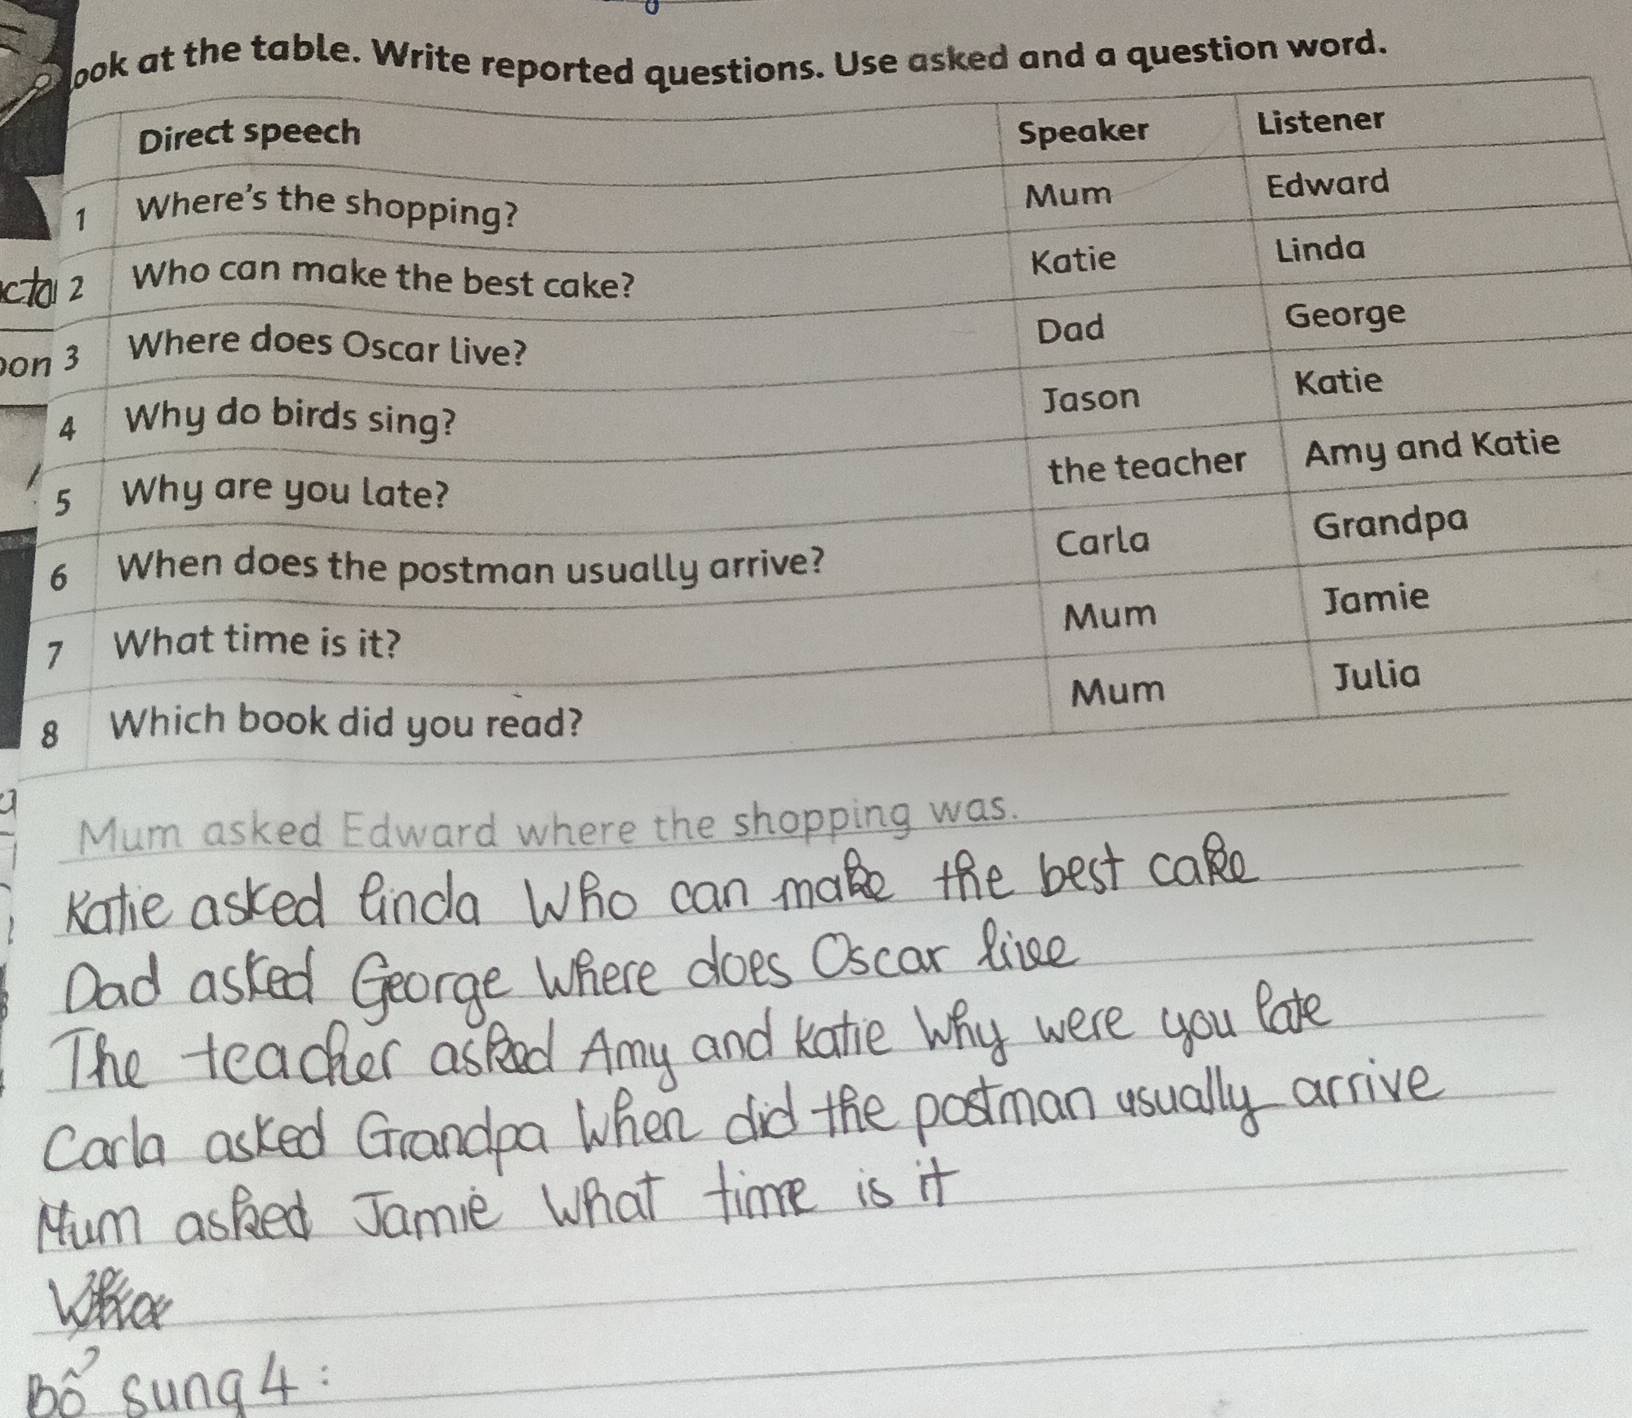 ook at the table. Write reported questions. Use asked and a question word.
Direct speech Speaker Listener
1 Where's the shopping? Mum Edward
2 Who can make the best cake? Katie Linda
3 Where does Oscar live? Dad George
4 Why do birds sing? Jason Katie
5 Why are you late? the teacher Amy and Katie
6 When does the postman usually arrive? Carla Grandpa
7 What time is it? Mum Jamie
8 Which book did you read? Mum Julia
Mum asked Edward where the shopping was.
Katie asked linda Who can make the best cake
Dad asked George Where does Oscar live
The teacher asked Amy and Katie Why were you late
Carla asked Grandpa When did the postman usually arrive
Mum asked Jamie What time is it
Bổ sung 4: